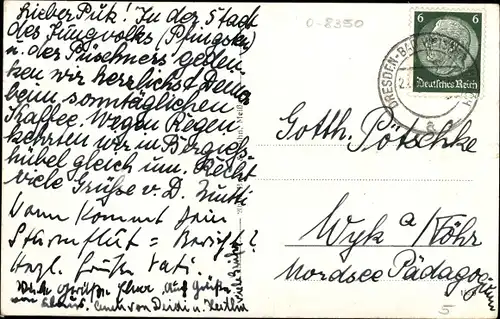 Lieber Puk! In der Stadt
des Jungvolks (Pfingsten)
u. der Püschners geden-
ken wir herzlichst Deiner
beim sonntäglichen
Kaffee. Wegen Regen
kehrten wir in Berggieß-
hübel gleich um. Recht
viele Grüße v. D. Mutti
Wann kommt Dein
Sturmflut = Bericht?
Herzl. Grüße Vati.
0-8350
6 6
Deutsches Reich
DRESDEN-BAD
a
Gotth. Pötschke
Wyk a Föhr
Nordsee Pädagogium
5